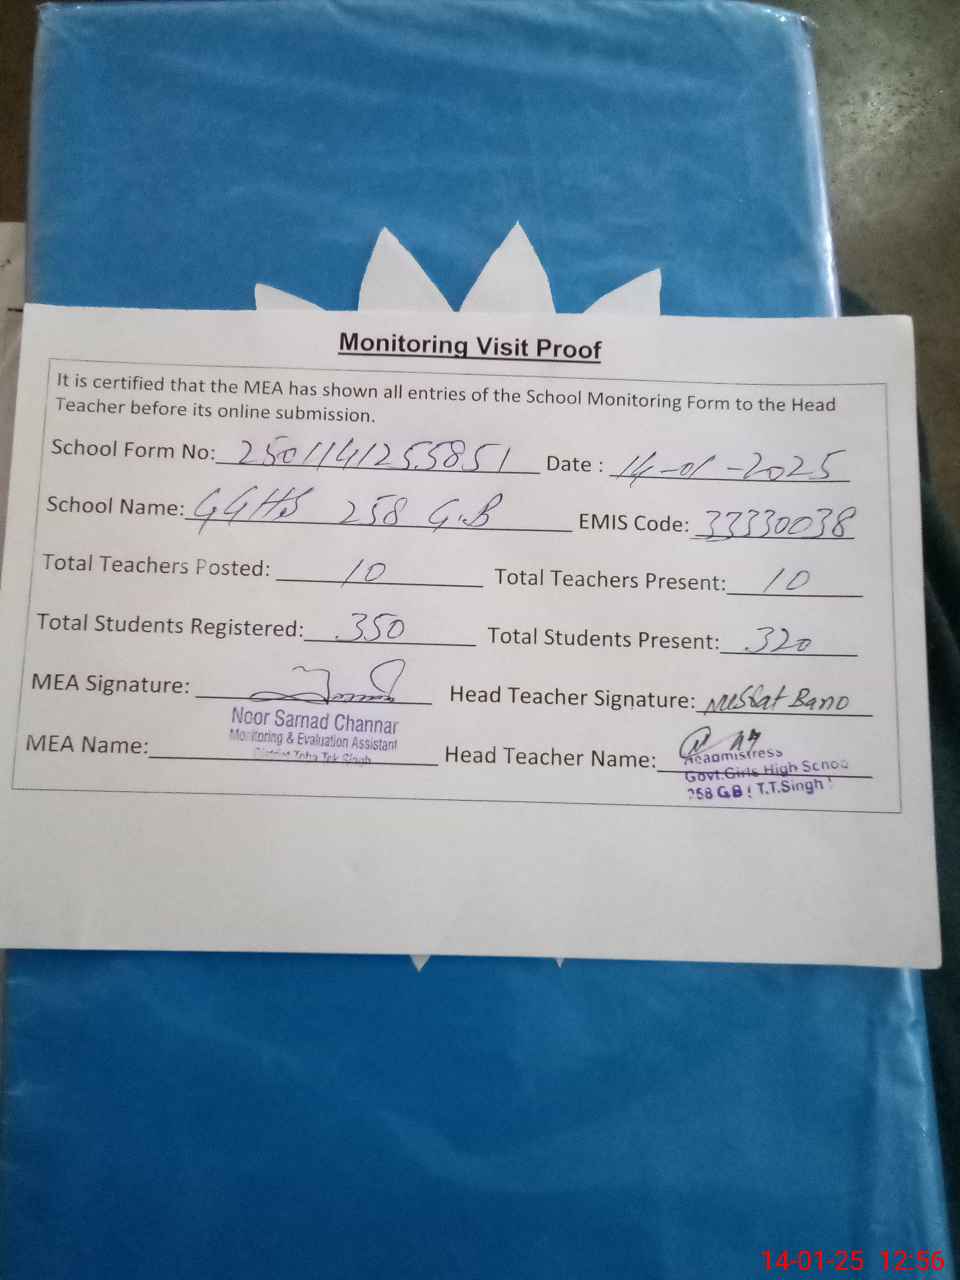 Monitoring Visit Proof
It is certified that the MEA has shown all entries of the School Monitoring Form to the Head
Teacher before its online submission.
School Form No: 2501141255851 Date : 14-01-2025
School Name: GGHS 258 G.B EMIS Code: 33330038
Total Teachers Posted: 10 Total Teachers Present: 10
Total Students Registered: 350 Total Students Present: 320
MEA Signature: Head Teacher Signature: Nussat Bano
Noor Samad Channar
Monitoring & Evaluation Assistant
District Toba Tek Singh
MEA Name: Head Teacher Name:
Headmistress
Govt.Girls High School
258 GB T.T.Singh
14-01-25 12:56